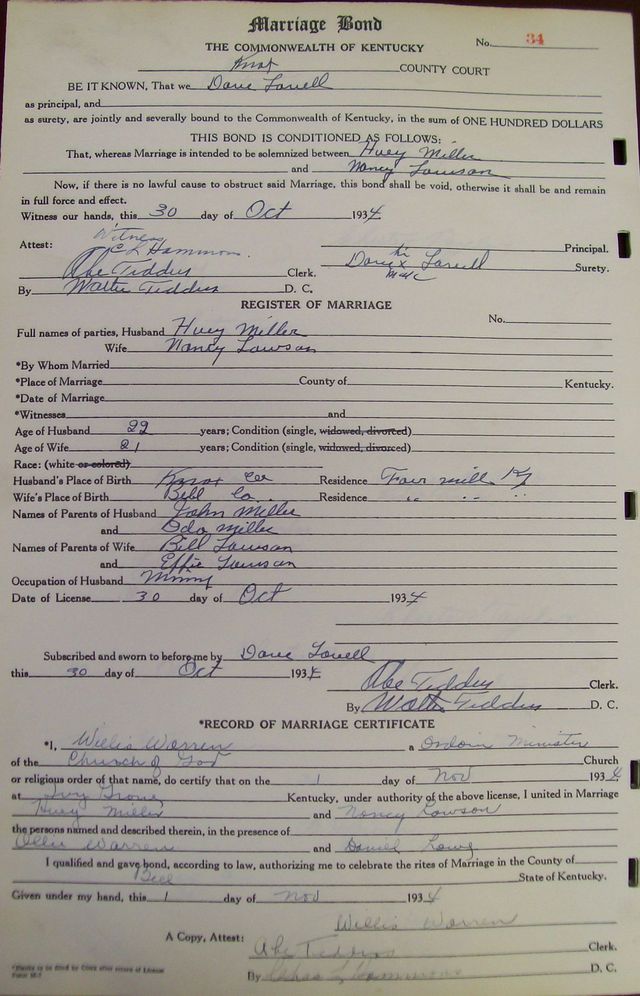 Marriage Bond
THE COMMONWEALTH OF KENTUCKY
No. 34
Knox COUNTY COURT
BE IT KNOWN, That we Dave Lovell
as principal, and
as surety, are jointly and severally bound to the Commonwealth of Kentucky, in the sum of ONE HUNDRED DOLLARS
THIS BOND IS CONDITIONED AS FOLLOWS:
That, whereas Marriage is intended to be solemnized between Huey Miller
and Nancy Lawson
Now, if there is no lawful cause to obstruct said Marriage, this bond shall be void, otherwise it shall be and remain
in full force and effect.
Witness our hands, this 30 day of Oct 1934
Attest: Witness
C L Hammons Principal.
Abe Tiddus Clerk. Dave x Lovell Surety.
By Walter Tiddus D. C.
REGISTER OF MARRIAGE
No.
Full names of parties, Husband Huey Miller
Wife Nancy Lawson
*By Whom Married
*Place of Marriage County of Kentucky.
*Date of Marriage
*Witnesses and
Age of Husband 22 years; Condition (single, widowed, divorced)
Age of Wife 21 years; Condition (single, widowed, divorced)
Race: (white or colored)
Husband's Place of Birth Knox Co Residence Four mill Ky
Wife's Place of Birth Bell Co. Residence " " "
Names of Parents of Husband John Miller
and Oda Miller
Names of Parents of Wife Bill Lawson
and Effie Lawson
Occupation of Husband Mining
Date of License 30 day of Oct 1934
Subscribed and sworn to before me by Dave Lovell
this 30 day of Oct 1934
Abe Tiddus Clerk.
By Walter Tiddus D. C.
*RECORD OF MARRIAGE CERTIFICATE
*I, Willis Warren a Ordain Minister
of the Church of God Church
or religious order of that name, do certify that on the 1 day of Nov 1934
at Ivy Grove Kentucky, under authority of the above license, I united in Marriage
Huey Miller and Nancy Lawson
the persons named and described therein, in the presence of
Ollie Warren and Daniel Lowe
I qualified and gave bond, according to law, authorizing me to celebrate the rites of Marriage in the County of
Bell State of Kentucky.
Given under my hand, this 1 day of Nov 1934
Willis Warren
A Copy, Attest: Abe Tiddus Clerk.
By Chas L Hammons D. C.
*Blanks to be filled by Clerk after return of License